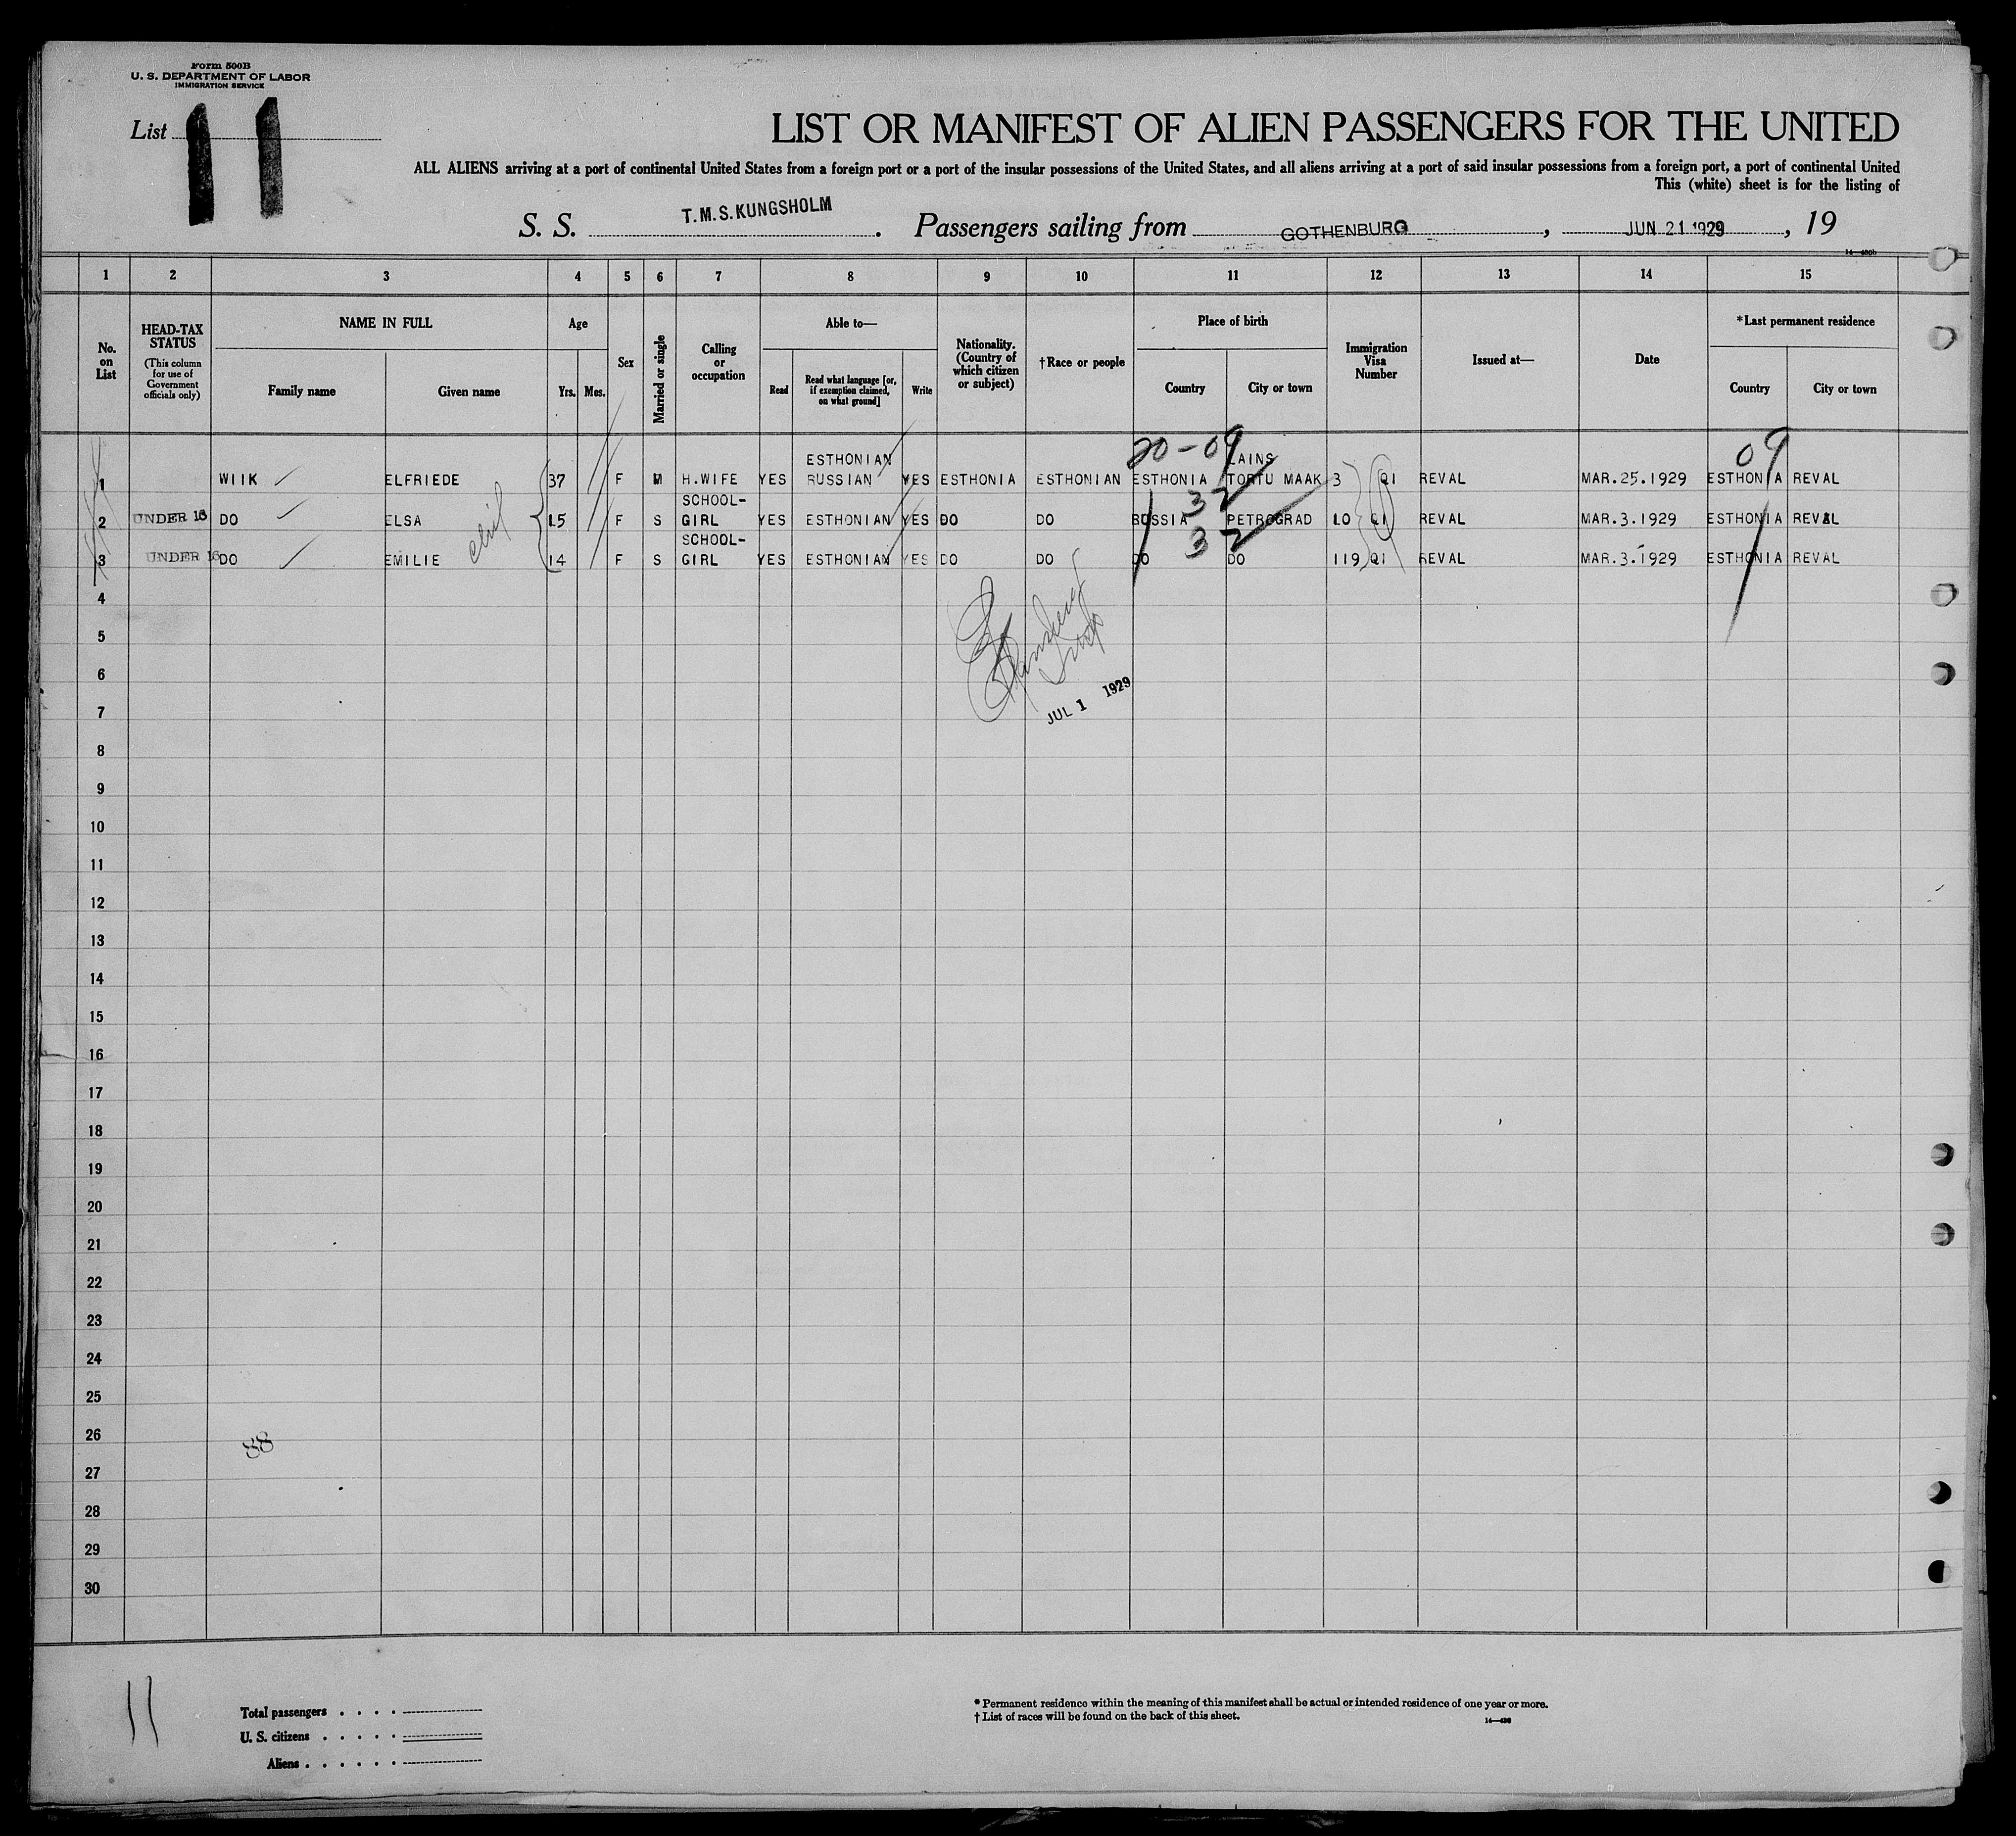 Form 500B
U. S. DEPARTMENT OF LABOR
IMMIGRATION SERVICE
List 11
LIST OR MANIFEST OF ALIEN PASSENGERS FOR THE UNITED
ALL ALIENS arriving at a port of continental United States from a foreign port or a port of the insular possessions of the United States, and all aliens arriving at a port of said insular possessions from a foreign port, a port of continental United
This (white) sheet is for the listing of
S. S. T.M.S.KUNGSHOLM. Passengers sailing from GOTHENBURG, JUN 21 1929, 19
1 2 3 4 5 6 7 8 9 10 11 12 13 14 15
No. on List
HEAD-TAX STATUS
(This column for use of Government officials only)
NAME IN FULL
Family name
Given name
Age
Yrs. Mos.
Sex
Married or single
Calling or occupation
Able to—
Read
Read what language [or, if exemption claimed, on what ground]
Write
Nationality. (Country of which citizen or subject)
†Race or people
Place of birth
Country
City or town
Immigration Visa Number
Issued at—
Date
*Last permanent residence
Country
City or town
20-09
09
ESTHONIAN
1 WIIK ELFRIEDE 37 F M H.WIFE YES RUSSIAN YES ESTHONIA ESTHONIAN ESTHONIA TORTU MAAK 3 QI REVAL MAR.25.1929 ESTHONIA REVAL
SCHOOL- 32
2 UNDER 16 DO ELSA 15 F S GIRL YES ESTHONIAN YES DO DO RUSSIA PETROGRAD 10 QI REVAL MAR.3.1929 ESTHONIA REVAL
SCHOOL- 32
3 UNDER 16 DO EMILIE 14 F S GIRL YES ESTHONIAN YES DO DO DO DO 119 QI REVAL MAR.3.1929 ESTHONIA REVAL
4
5
6
7
JUL 1 1929
8
9
10
11
12
13
14
15
16
17
18
19
20
21
22
23
24
25
26
88
27
28
29
30
11
Total passengers . . . .
U. S. citizens . . . . .
Aliens . . . . . .
* Permanent residence within the meaning of this manifest shall be actual or intended residence of one year or more.
† List of races will be found on the back of this sheet.